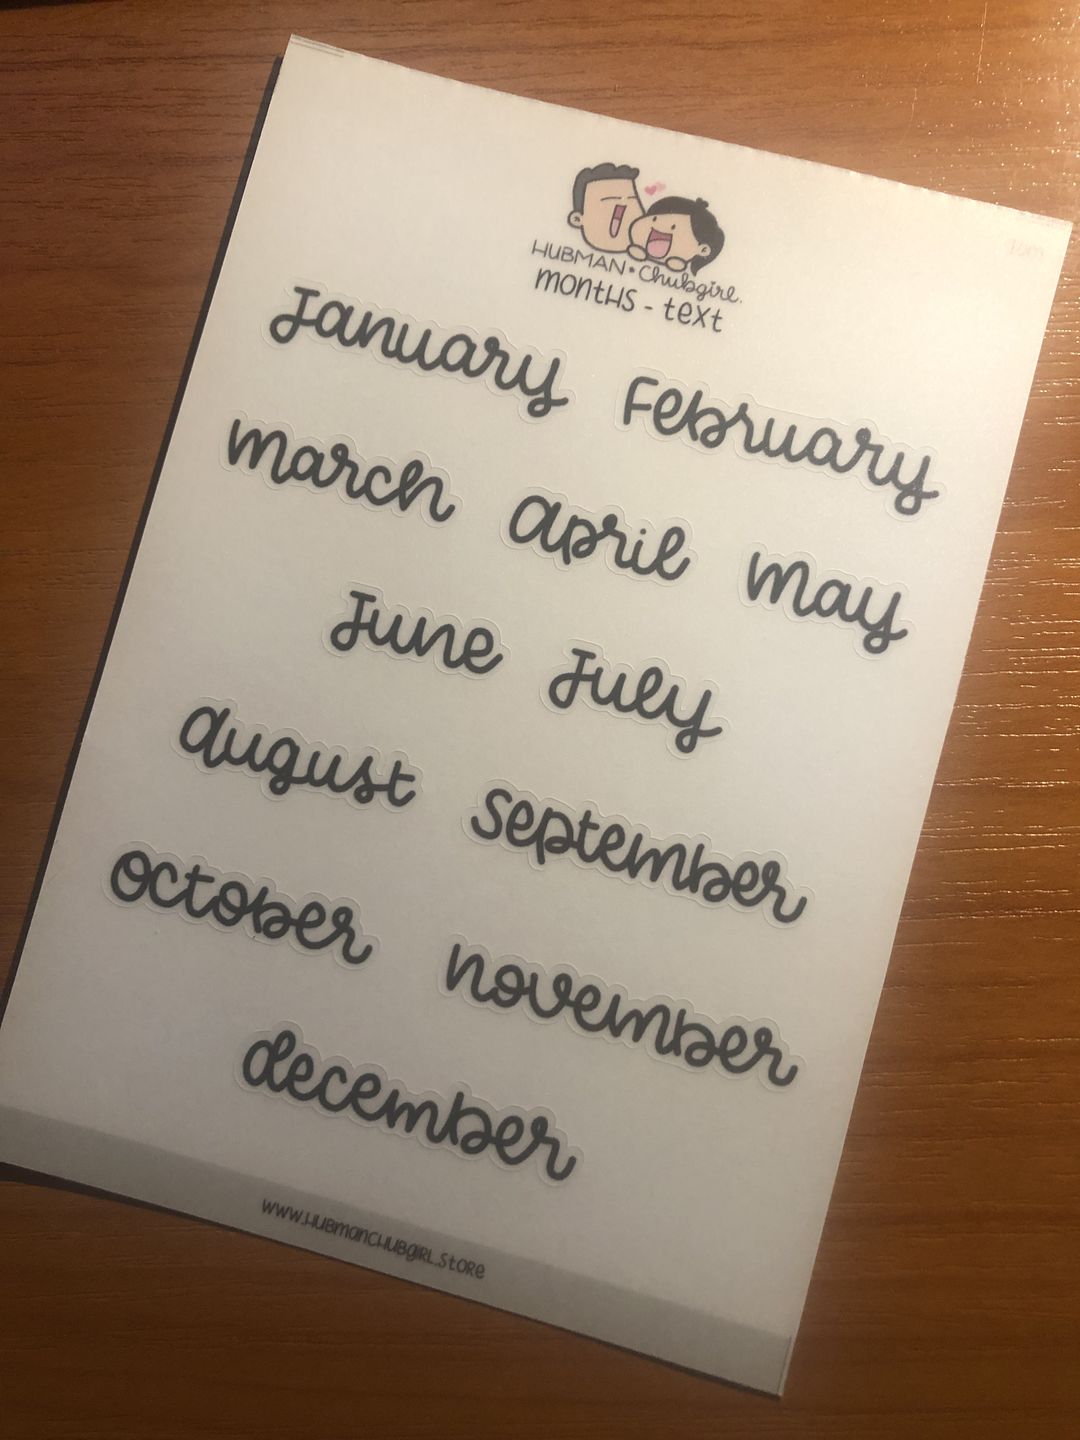 HUBMAN • Chubgirl.
montHs - text
January February
march april may
June July
august september
october november
december
www.HUBmanCHUBgIRL.StoRe